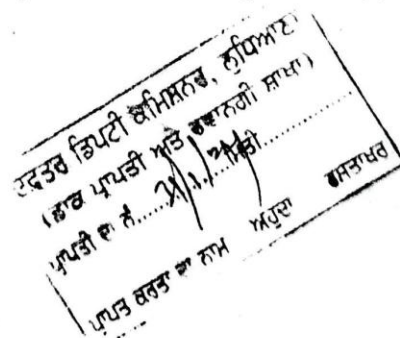 ਦਫਤਰ ਡਿਪਟੀ ਕਮਿਸ਼ਨਰ, ਲੁਧਿਆਣਾ
(ਡਾਕ ਪ੍ਰਾਪਤੀ ਅਤੇ ਰਵਾਨਗੀ ਸ਼ਾਖਾ)
ਪ੍ਰਾਪਤੀ ਦਾ ਨੰ.......... ਮਿਤੀ..........
ਪ੍ਰਾਪਤ ਕਰਤਾ ਦਾ ਨਾਮ ਅਹੁਦਾ ਹਸਤਾਖਰ